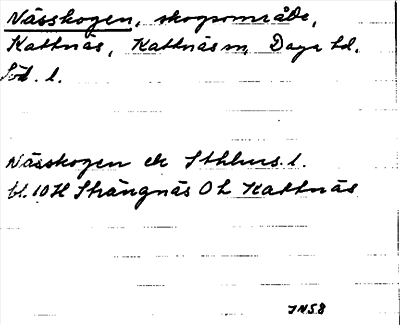 Nässkogen, skogsområde,
Kattnäs, Kattnäs sn, Daga hd.
Söd. l.
Nässkogen ek Sthlms. l.
bl. 10 H Strängnäs O h Kattnäs
JNS8